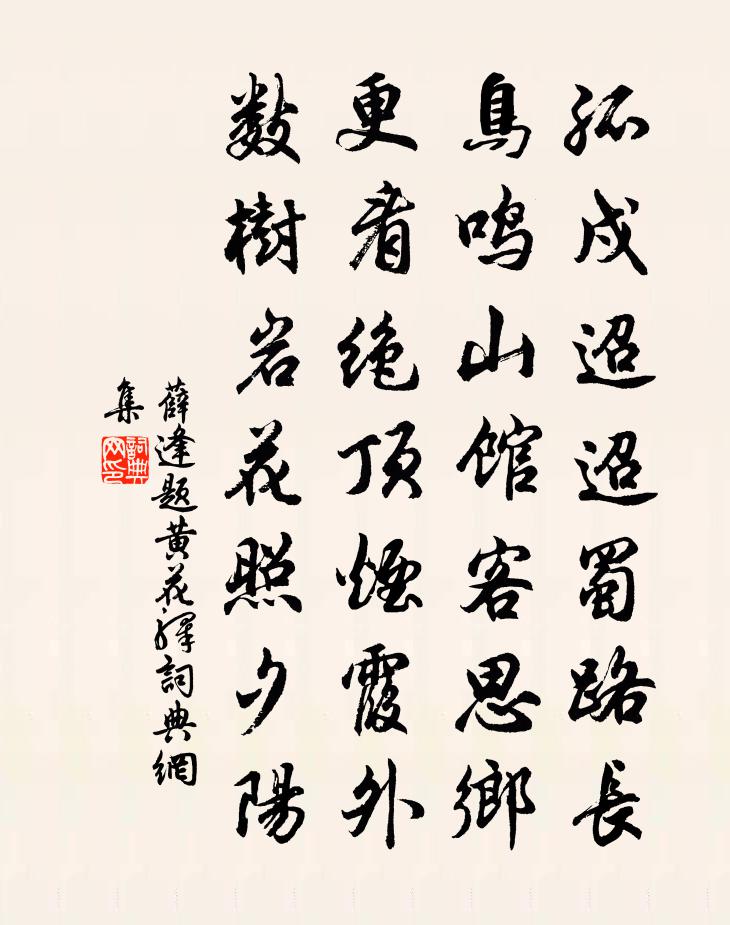 孤戍迢迢蜀路長
鳥鳴山館客思鄉
更看絶頂煙霞外
数樹岩花照夕陽
薛逢題黄花驛詞典網
集
詞典網印